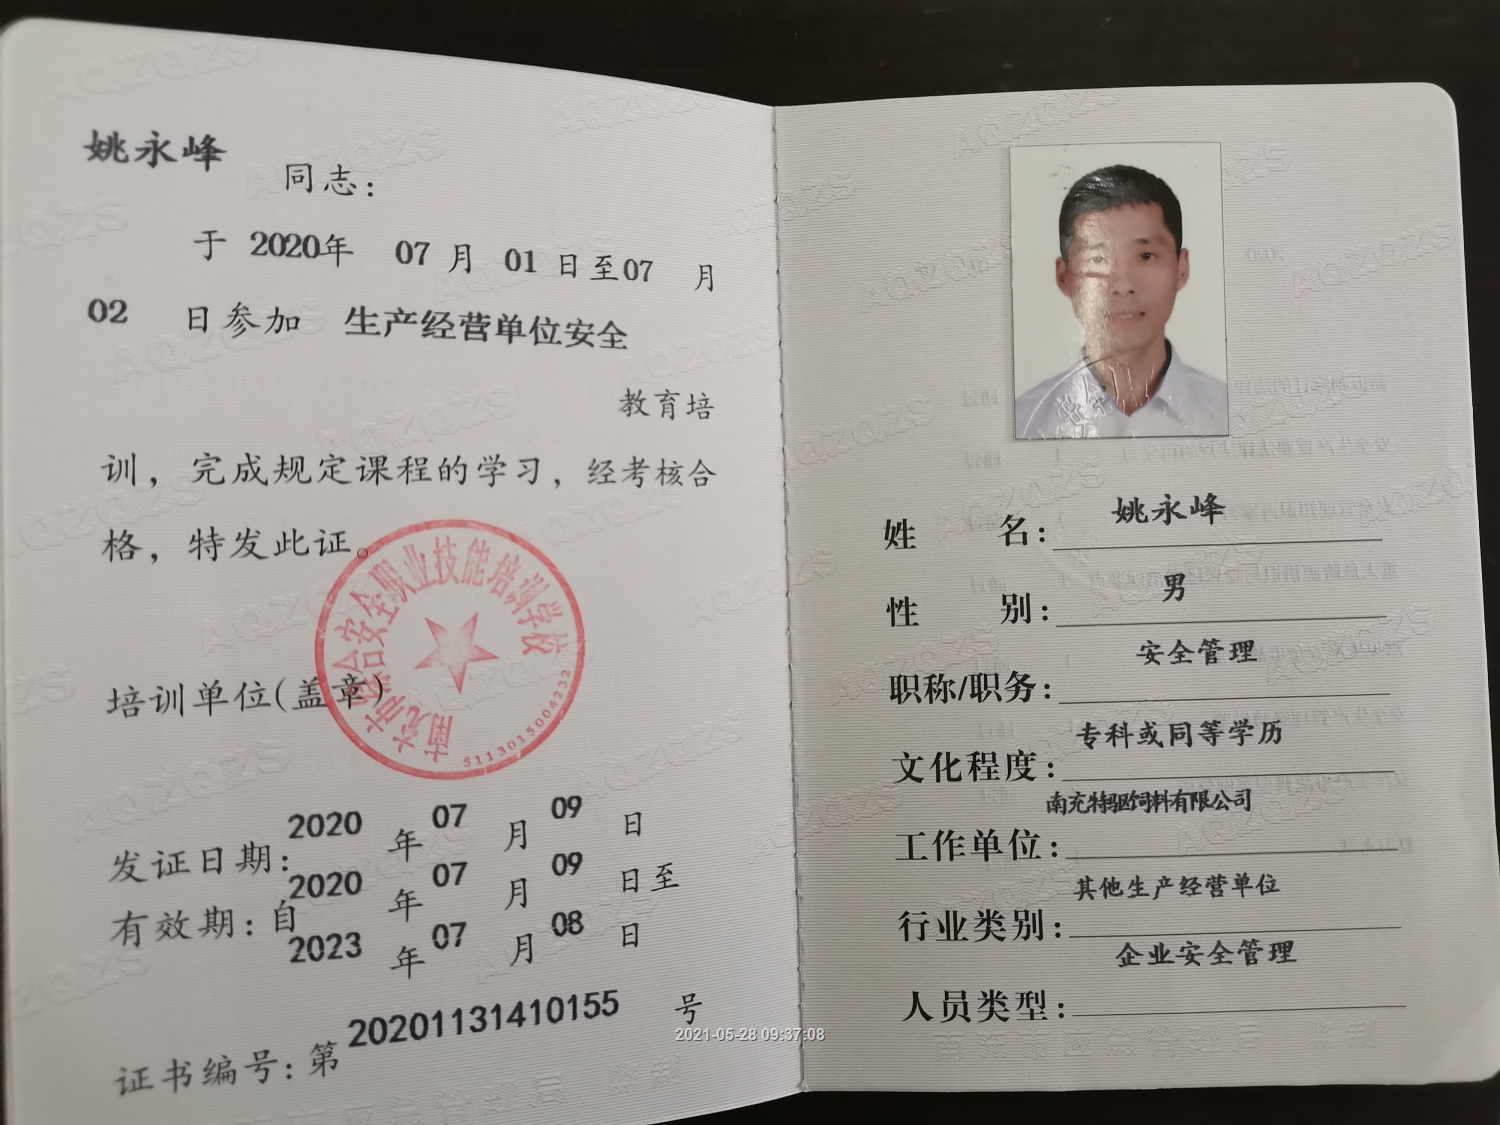 姚永峰 同志：
于 2020年 07 月 01 日至07 月
02 日参加 生产经营单位安全
教育培
训，完成规定课程的学习，经考核合
格，特发此证。
培训单位(盖章)
安全职业技能培训学校
5113015004232
发证日期：2020 年 07 月 09 日
有效期：自 2020 年 07 月 09 日至
2023 年 07 月 08 日
证书编号：第 20201131410155 号
姓 名：姚永峰
性 别：男
职称/职务：安全管理
文化程度：专科或同等学历
工作单位：南充特驱饲料有限公司
行业类别：其他生产经营单位
人员类型：企业安全管理
2021-05-28 09:37:08
AQZQZS